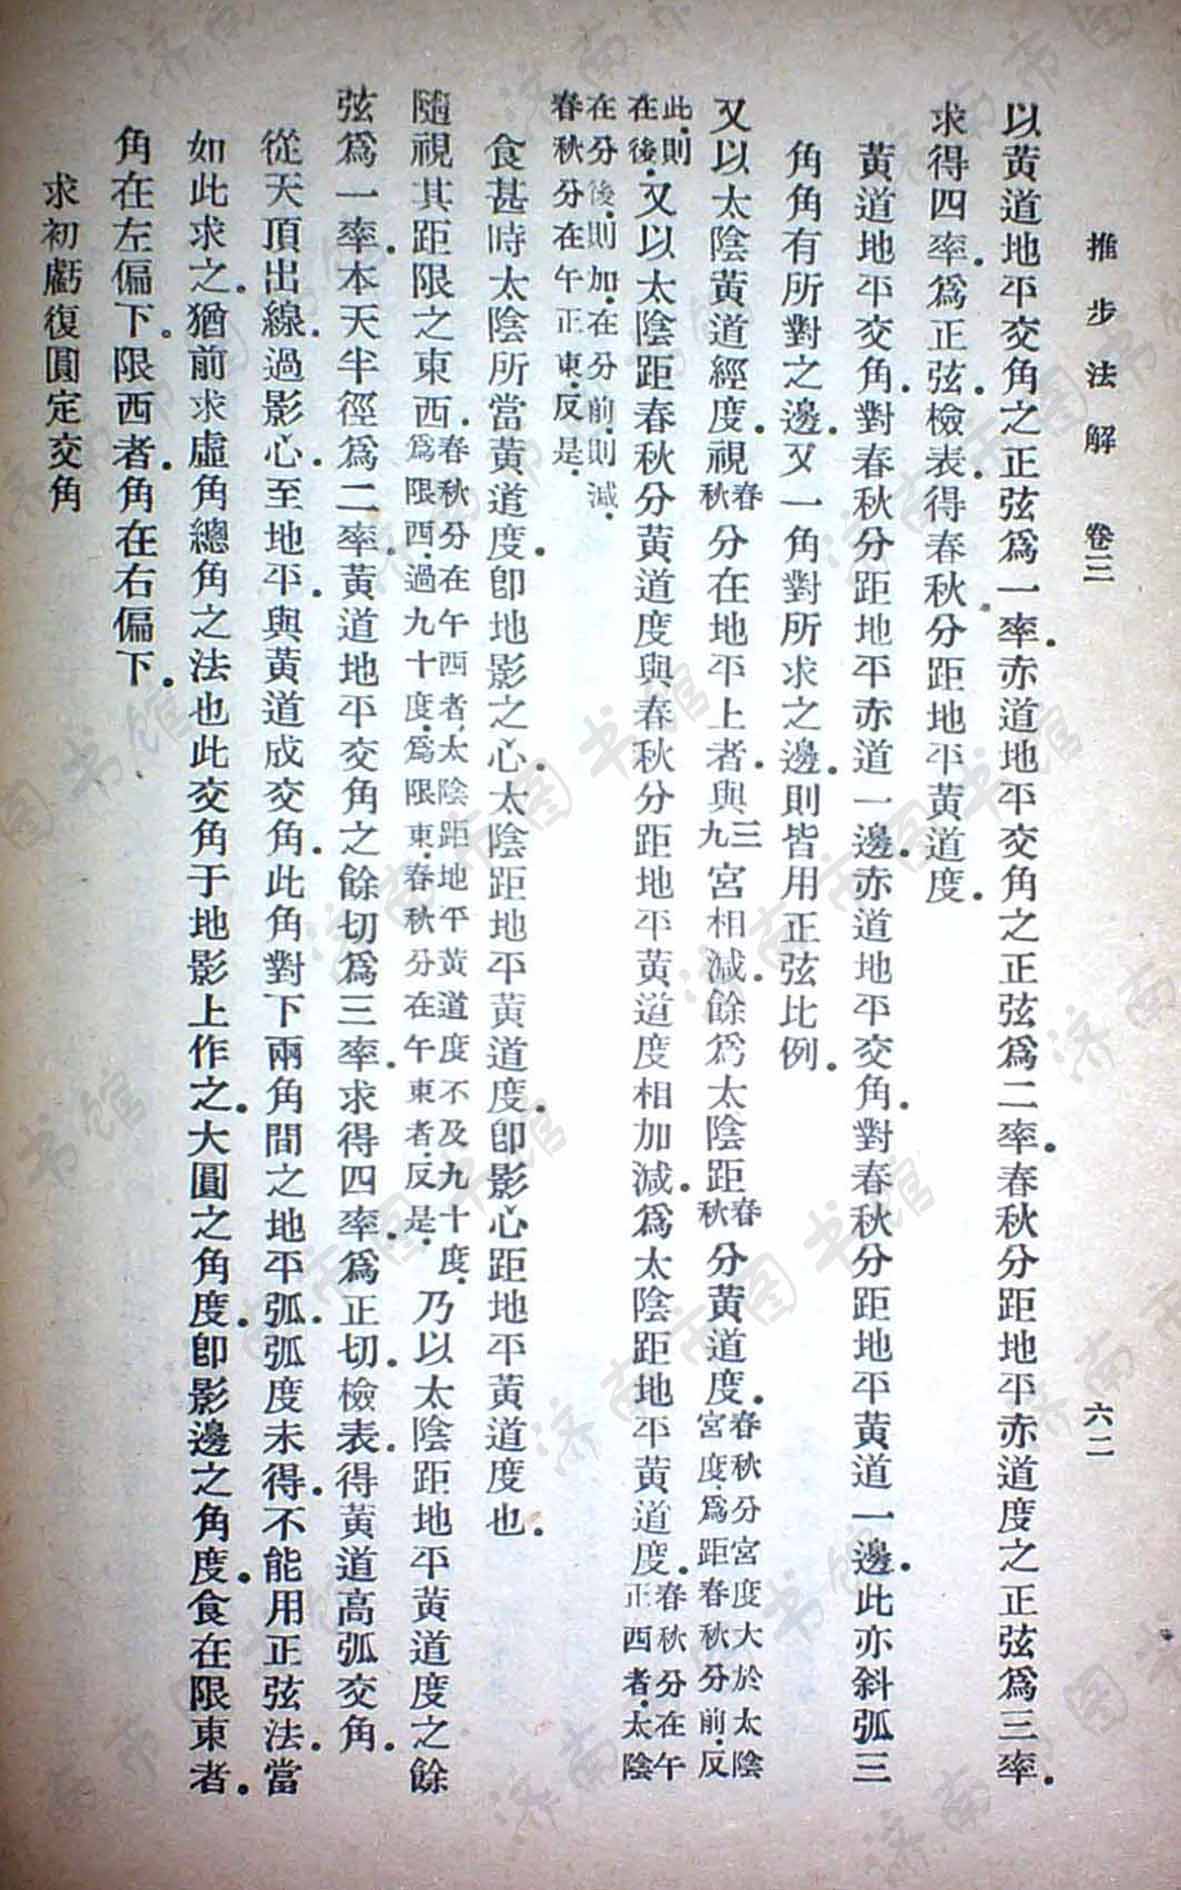 推步法解　卷三　六二
以黃道地平交角之正弦爲一率。赤道地平交角之正弦爲二率。春秋分距地平赤道度之正弦爲三率。
求得四率。爲正弦。檢表。得春秋分距地平黃道度。
黃道地平交角。對春秋分距地平赤道一邊。赤道地平交角。對春秋分距地平黃道一邊。此亦斜弧三
角角有所對之邊。又一角對所求之邊。則皆用正弦比例。
又以太陰黃道經度。視春秋分在地平上者。與三九宮相減。餘爲太陰距春秋分黃道度。春秋分宮度大於太陰宮度。爲距春秋分前。反
此。則在後。又以太陰距春秋分黃道度與春秋分距地平黃道度相加減。爲太陰距地平黃道度。春秋分在午正西者。太陰
在分後。則加。在分前。則減。春秋分在午正東。反是。
食甚時太陰所當黃道度。卽地影之心。太陰距地平黃道度。卽影心距地平黃道度也。
隨視其距限之東西。春秋分在午西者。太陰距地平黃道度不及九十度。爲限西。過九十度。爲限東。春秋分在午東者。反是。乃以太陰距地平黃道度之餘
弦爲一率。本天半徑爲二率。黃道地平交角之餘切爲三率。求得四率。爲正切。檢表。得黃道高弧交角。
從天頂出線。過影心。至地平。與黃道成交角。此角對下兩角間之地平弧。弧度未得。不能用正弦法。當
如此求之。猶前求虛角總角之法也此交角于地影上作之。大圓之角度。卽影邊之角度。食在限東者。
角在左偏下。限西者。角在右偏下。
求初虧復圓定交角